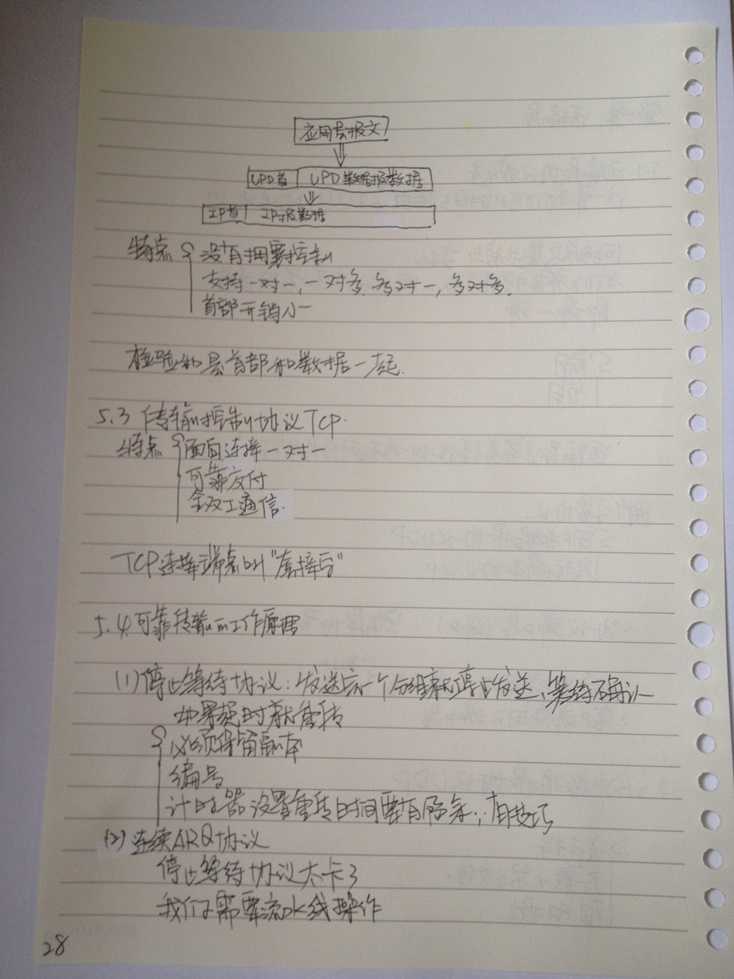 应用层报文
UPD首 UPD数据报数据
IP首 IP层数据
特点 没有拥塞控制
支持一对一,一对多,多对一,多对多.
首部开销小
检验和是首部和数据一起.
5.3 传输控制协议TCP.
特点 面向连接一对一
可靠交付
全双工通信.
TCP连接端点叫"套接字"
5.4 可靠传输的工作原理
(1)停止等待协议:发送完一个分组就停止发送,等待确认
如果超时就重传
必须保留副本
编号
计时器设置重传时间要有
(2)连续ARQ协议
停止等待协议太卡了
我们需要流水线操作
28